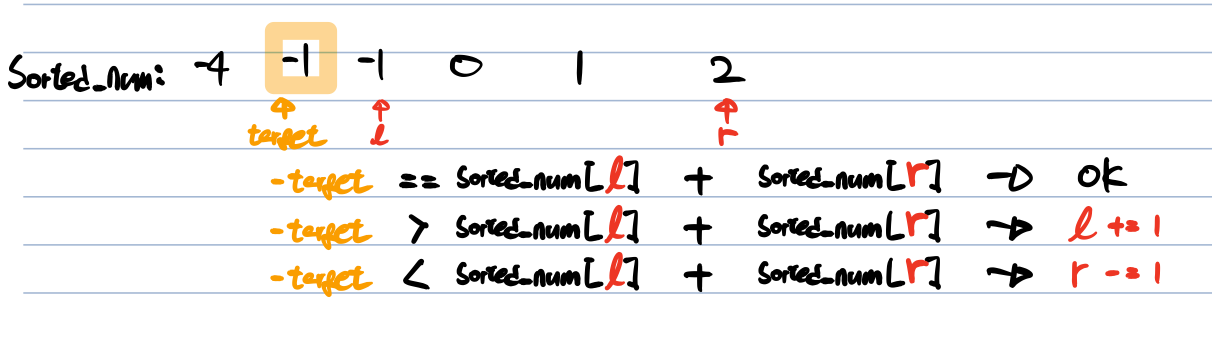 Sorted_num: -4 -1 -1 0 1 2
target l r
-target == sorted_num[l] + sorted_num[r] → ok
-target > sorted_num[l] + sorted_num[r] → l += 1
-target < sorted_num[l] + sorted_num[r] → r -= 1